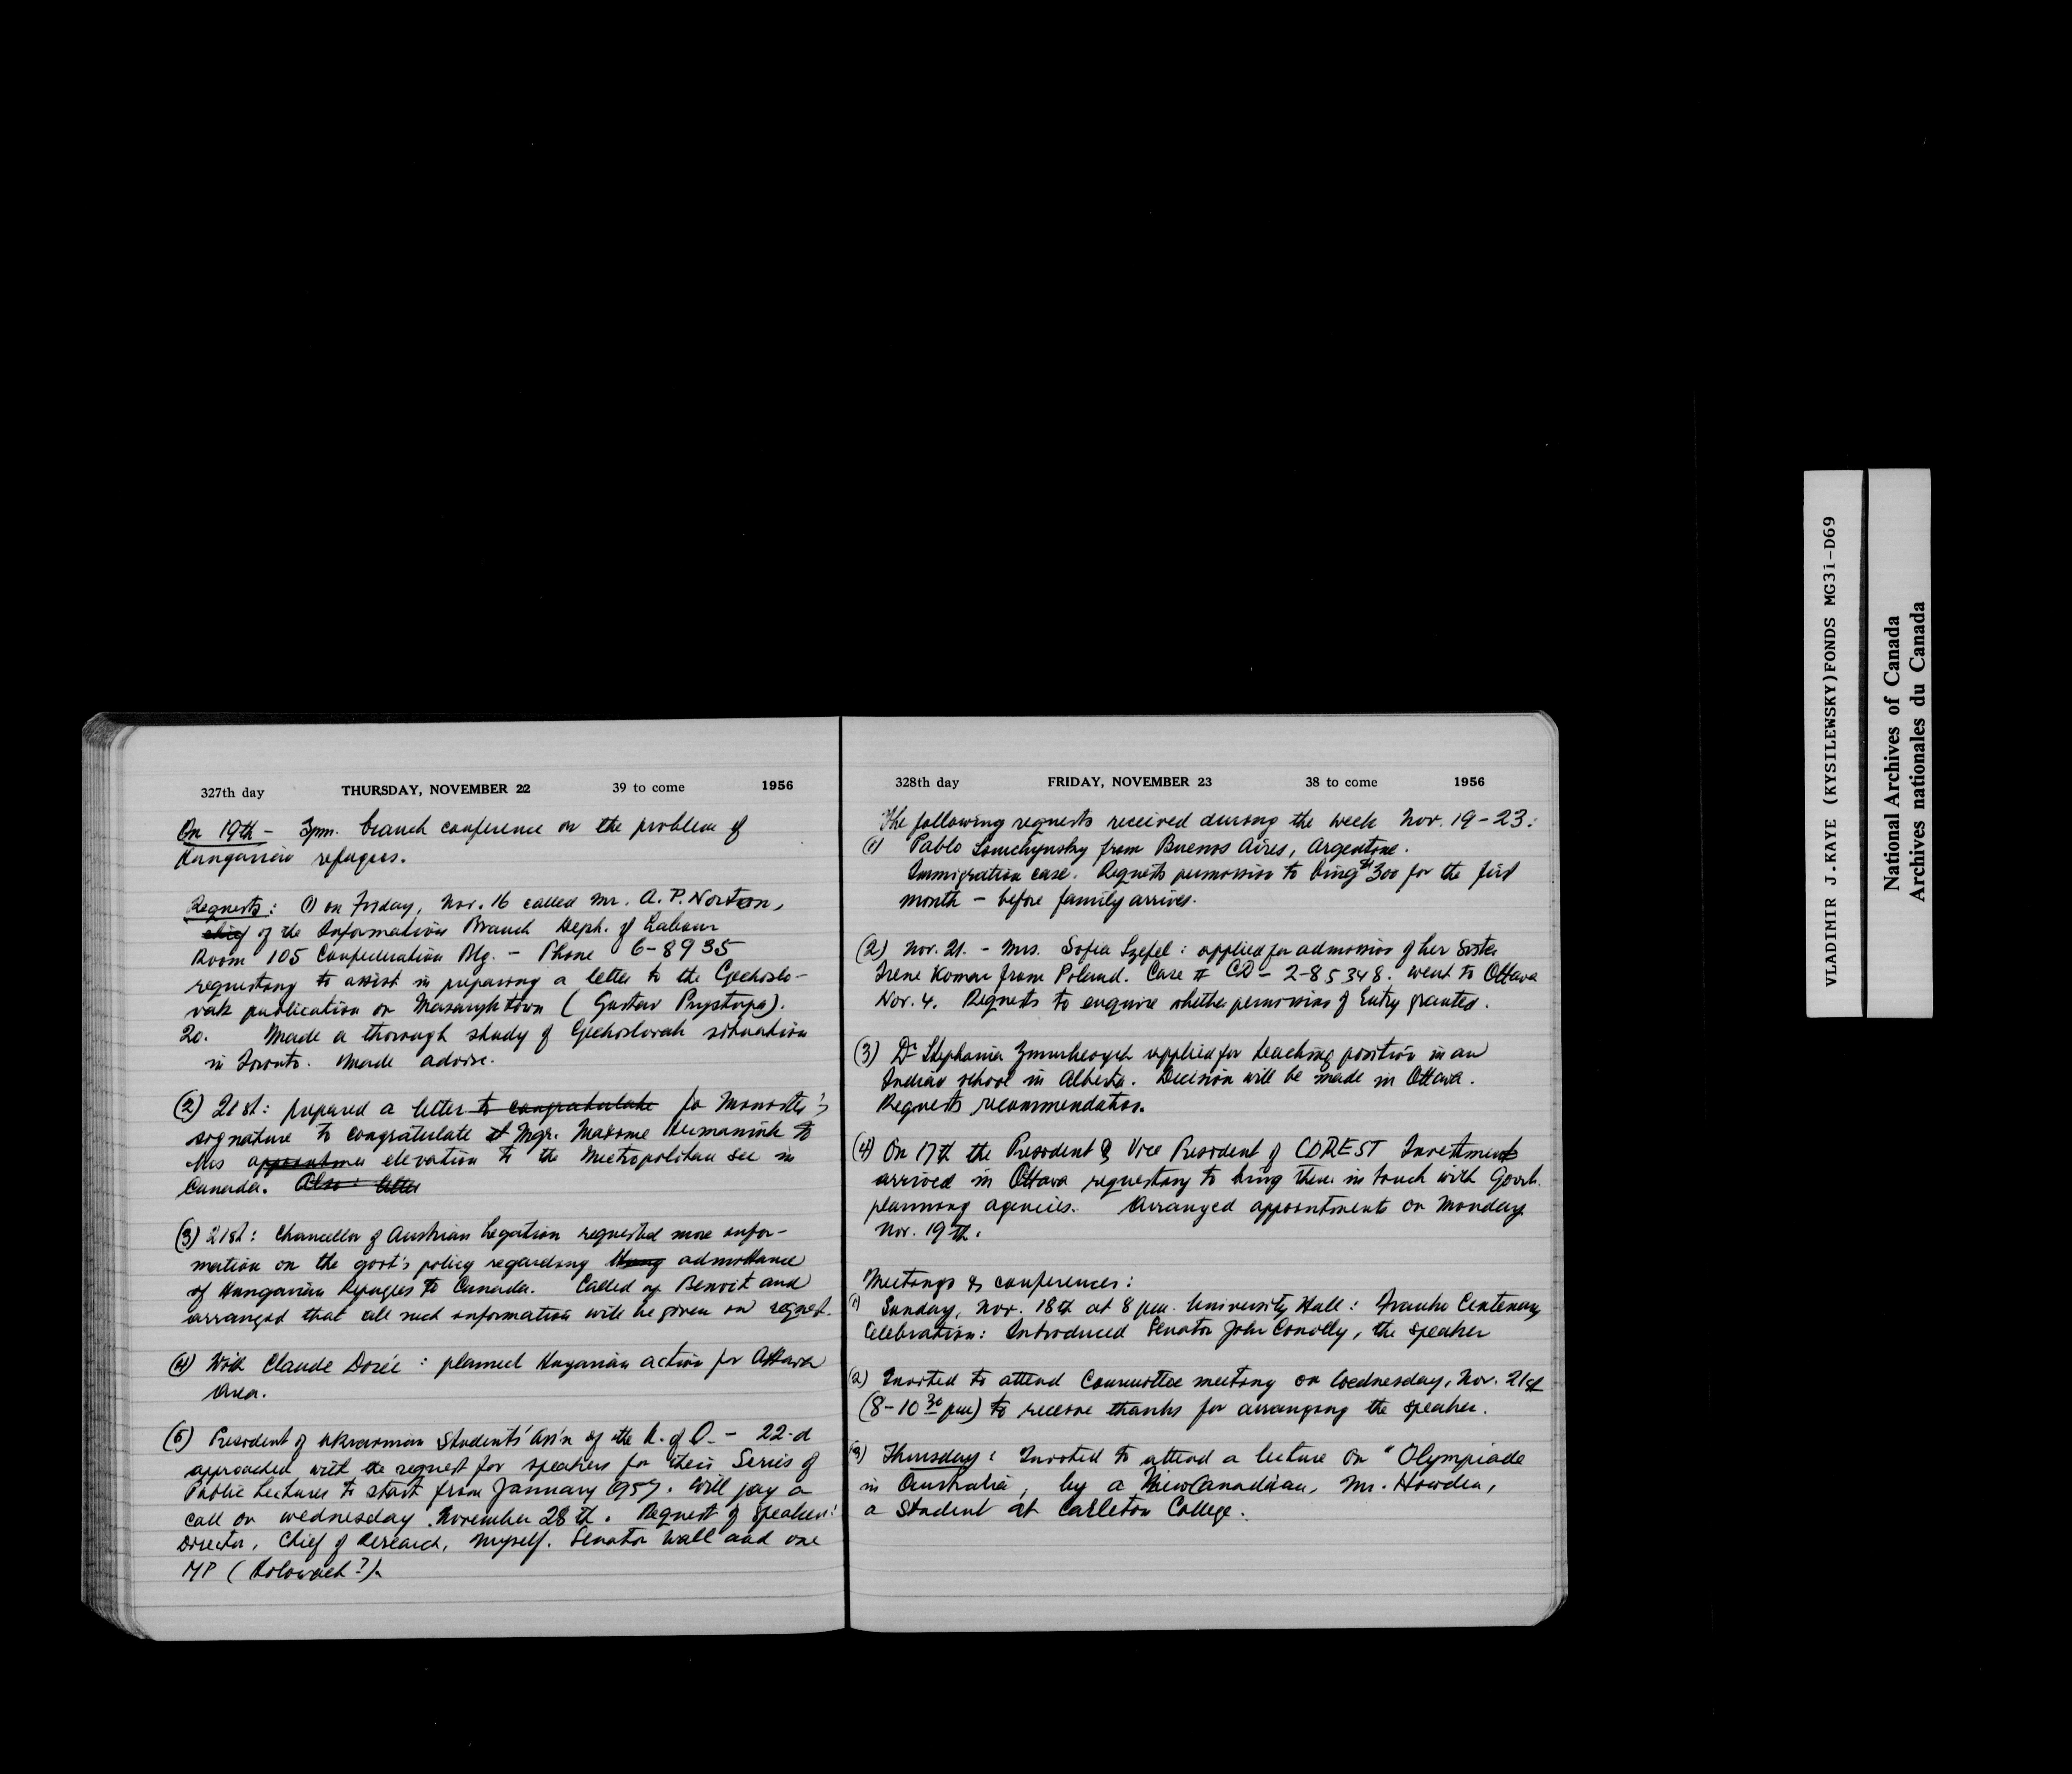 327th day THURSDAY, NOVEMBER 22 39 to come 1956
On 19th - 3pm. branch conference on the problem of
Hungarian refugees.
Requests: (1) on Friday, Nov. 16 called Mr. A. P. Norton,
chief of the Information Branch Deph. of Labour
Room 105 Confederation Blg. - Phone 6-8935
requesting to assist in preparing a letter to the Czechoslo-
vak publication on Masaryktown (Gustav Prystupa).
20. Made a thorough study of Czechoslovak situation
in Toronto. Made advise.
(2) 21st: prepared a letter to congratulate for Minister's
signature to congratulate Mgr. Maxime Hermaniuk to
his appointmen elevation to the Metropolitan see in
Canada. Also: letter
(3) 21st: Chancellor of Austrian Legation requested more infor-
mation on the govt's policy regarding Hung admittance
of Hungarian Refugees to Canada. Called up Benoit and
arranged that all such information will be given on request.
(4) With Claude Dorée: planned Hugarian action for Ottawa
area.
(5) President of Ukrainian Students' Ass'n of the U. of O. - 22-d
approached with the request for speakers for their Series of
Public Lectures to start from January 1957. Will pay a
call on Wednesday November 28th. Request of speakers:
Director, Chief of Research, myself. Senator Wall and one
MP (Holowach?).
328th day FRIDAY, NOVEMBER 23 38 to come 1956
The following requests received during the week Nov. 19-23:
(1) Pablo from Buenos Aires, Argentine.
Immigration case. Requests permission to bring $300 for the first
month - before family arrives.
(2) Nov. 21. - Mrs. Sofia Szefel: applied for admission of her sister
Irene Koman from Poland. Case # CD - 2-85348. went to Ottawa
Nov. 4. Requests to enquire whether permission of Entry granted.
(3) Dr Stephania applied for teaching position in an
Indian school in Alberta. Decision will be made in Ottawa.
Requests recommendation.
(4) On 17th the President & Vice President of COREST Investment
arrived in Ottawa requesting to bring them in touch with Govt.
planning agencies. Arranged appointments on Monday
Nov. 19th.
Meetings & conferences:
(1) Sunday, Nov. 18th at 8 pm. University Hall: Franko Centenary
Celebration: Introduced Senator John Conolly, the speaker
(2) Invited to attend Committee meeting on Wednesday, Nov. 21st
(8-10 30 pm) to receive thanks for arranging the speaker.
(3) Thursday: Invited to attend a lecture on "Olympiade
in Australia, by a New Canadian, Mr. Howden,
a student at Carleton College.
VLADIMIR J.KAYE (KYSILEWSKY)FONDS MG31-D69
National Archives of Canada
Archives nationales du Canada